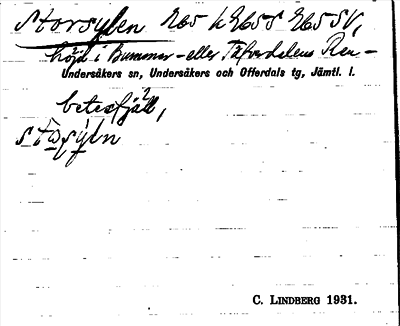 Storsylen 265 h 265 S 265 SV,
höjd i Bummer- eller Täfverdalens Ren-
Undersåkers sn, Undersåkers och Offerdals tg, Jämtl. l.
betesfjäll,
C. LINDBERG 1931.